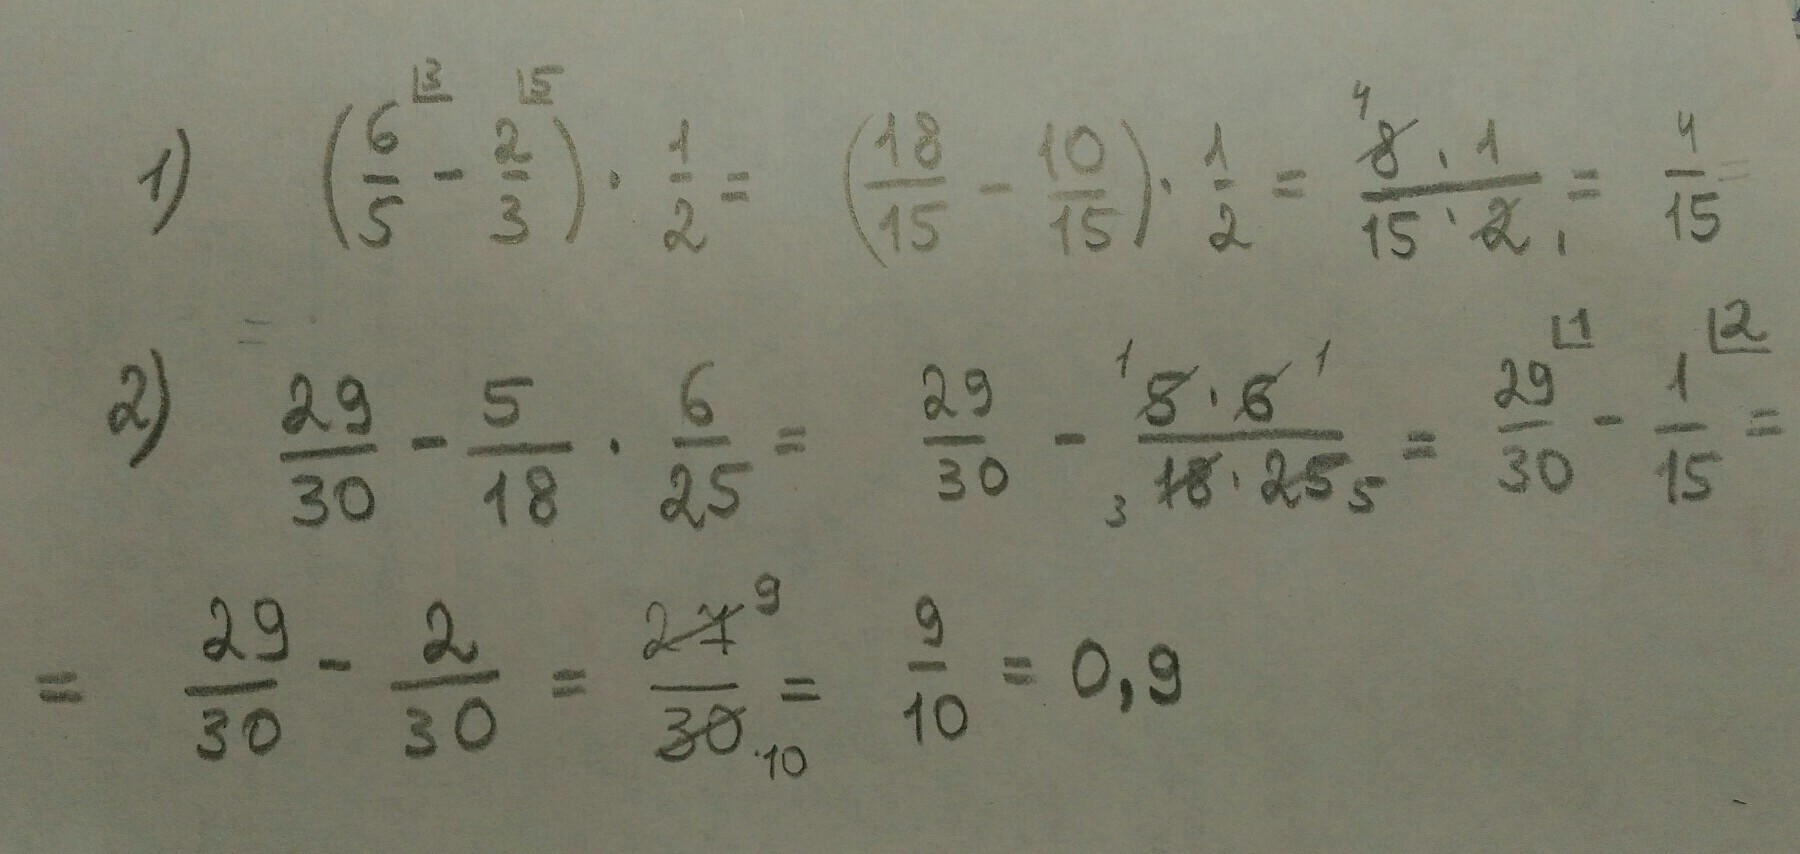 1) (6/5 ⌊3 - 2/3 ⌊5) · 1/2 = (18/15 - 10/15) · 1/2 = 4 8 · 1 / 15 · 2 1 = 4/15 =
2) 29/30 - 5/18 · 6/25 = 29/30 - 1 5 · 6 1 / 3 18 · 25 5 = 29/30 ⌊1 - 1/15 ⌊2 =
= 29/30 - 2/30 = 27 9 / 30 10 = 9/10 = 0,9